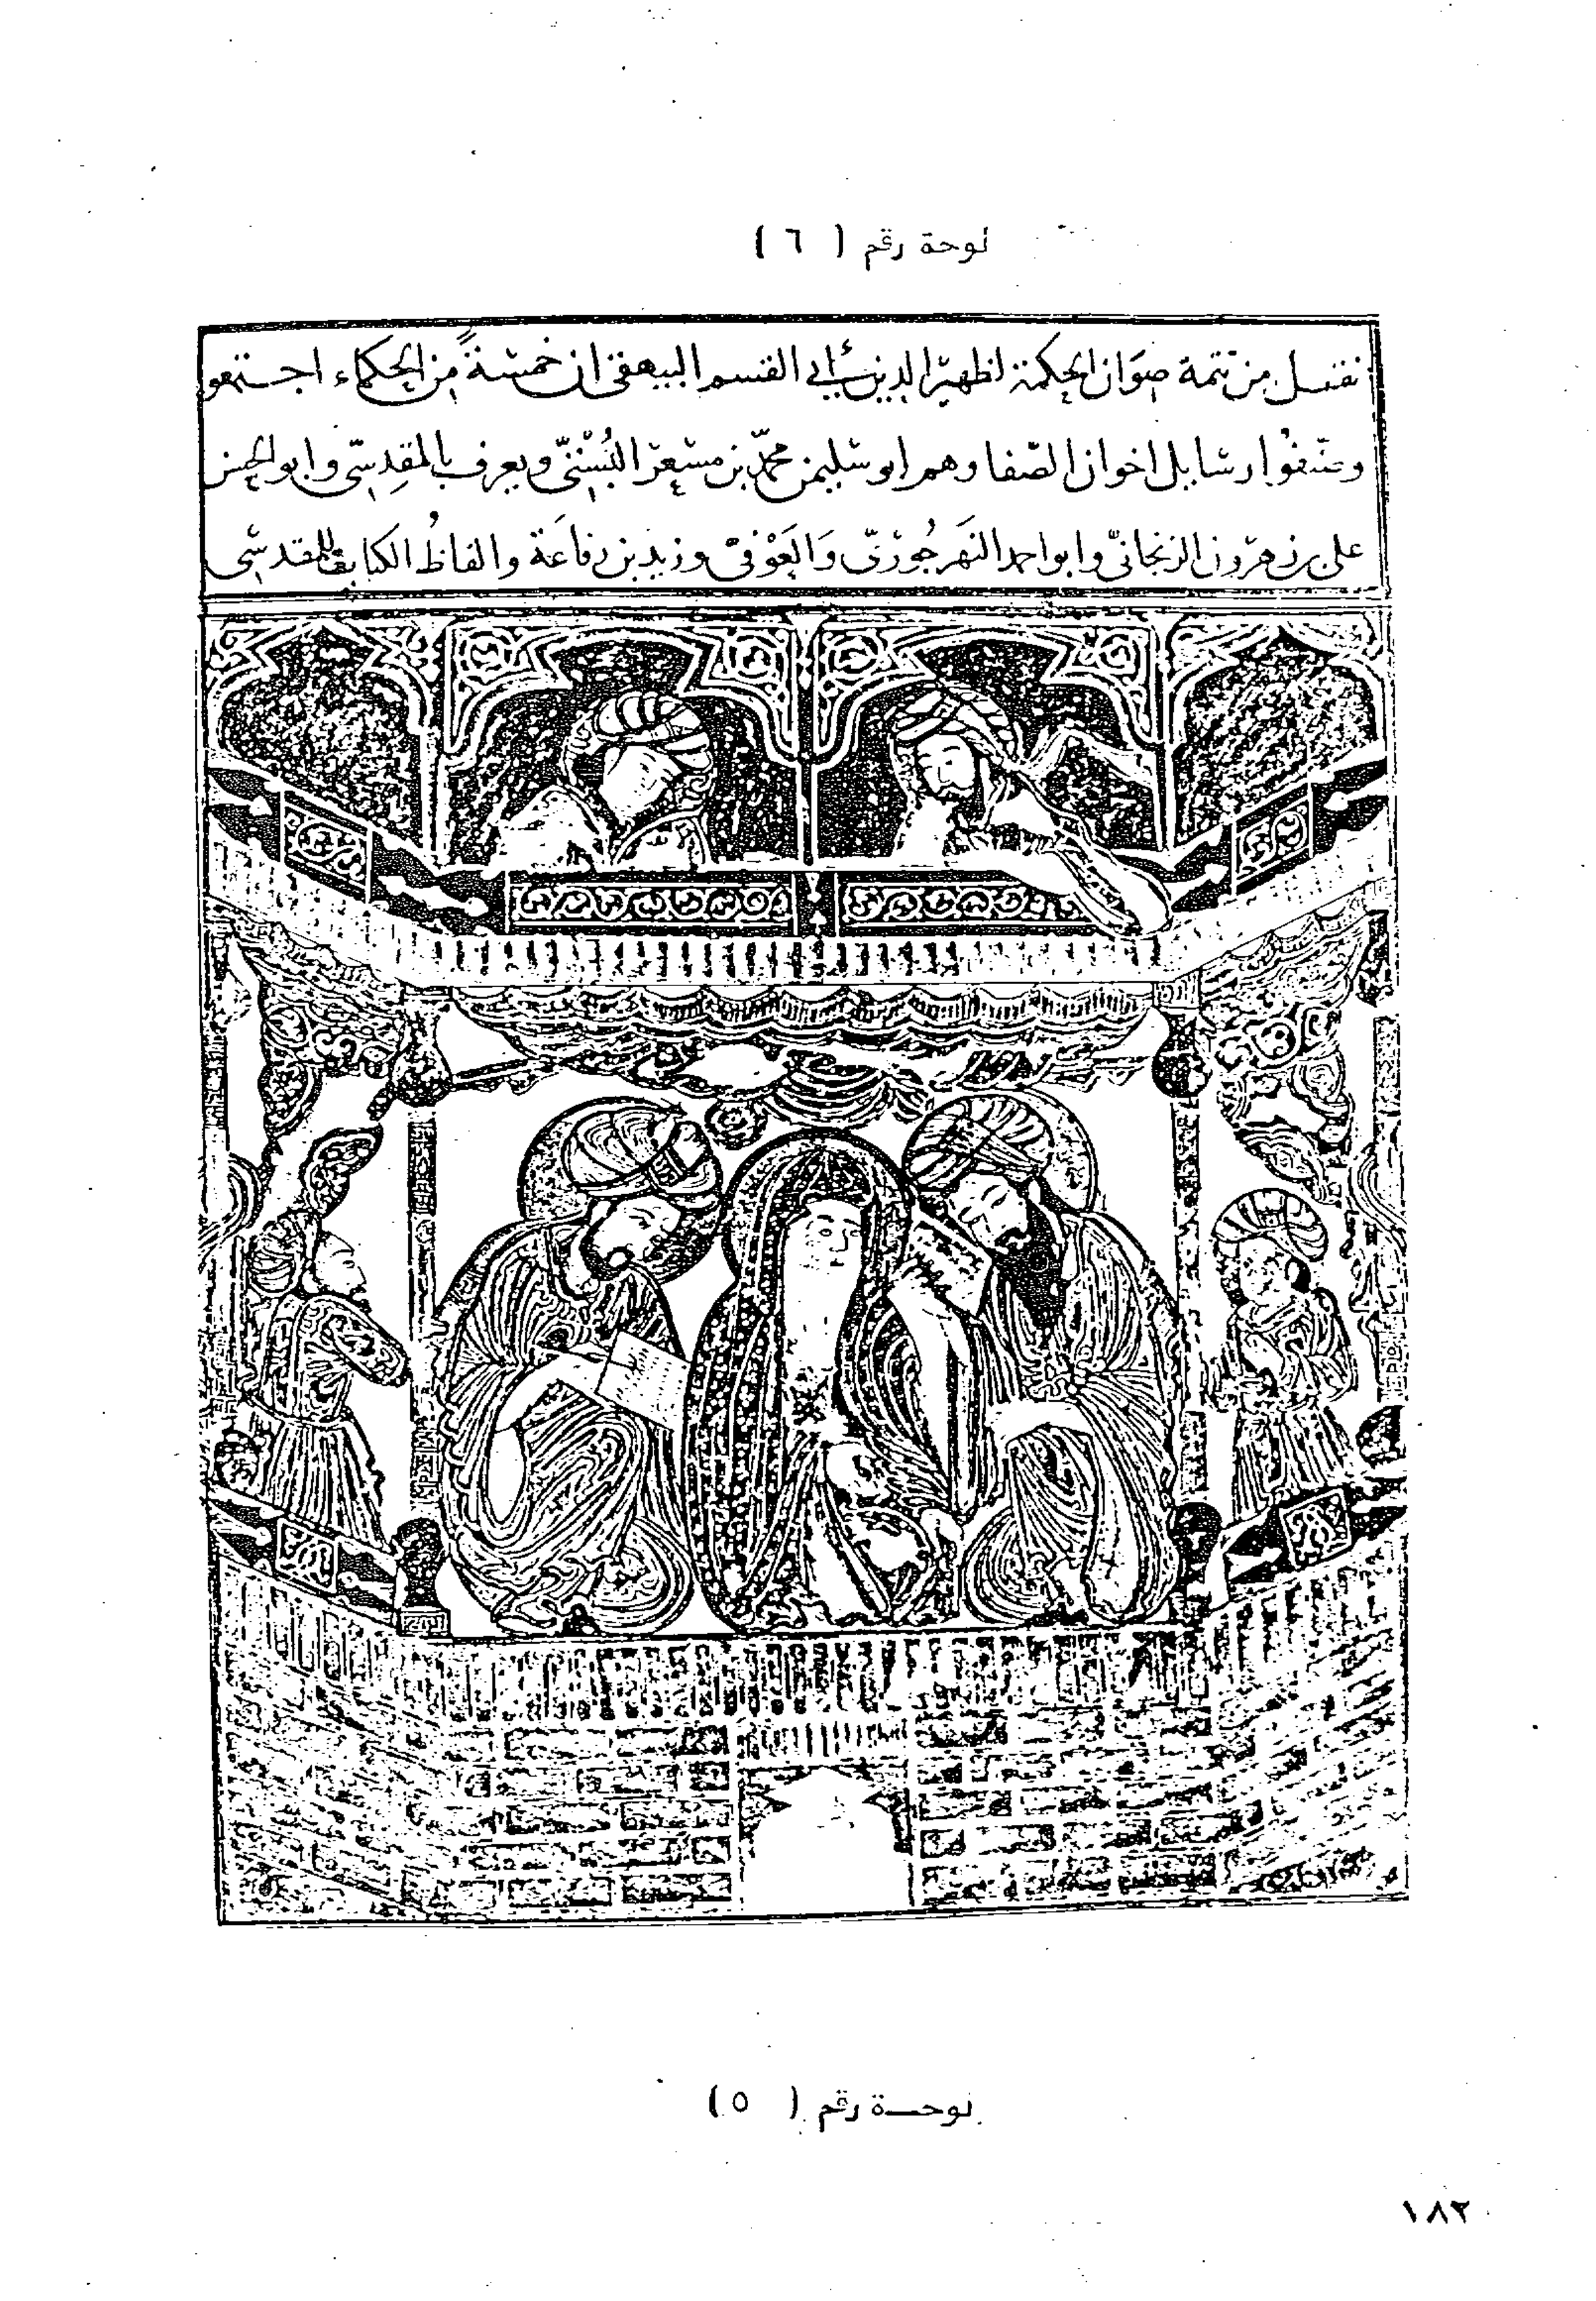 لوحة رقم ( ٦ )
نقتل من تتمة صوان الحكمة لظهير الدين أبي القسم البيهقي ان خمسة من الحكماء اجتمعو
وصنفوا رسايل اخوان الصفا وهم ابو سليمن محمد بن مسعر البستي ويعرف بالمقدسي وابو الحسن
علي بن هرون الزنجاني وابو احمد النهرجوري والعوفي وزيد بن رفاعة والفاظ الكتاب للمقدسي
لوحـة رقم ( ٥ )
١٨٢